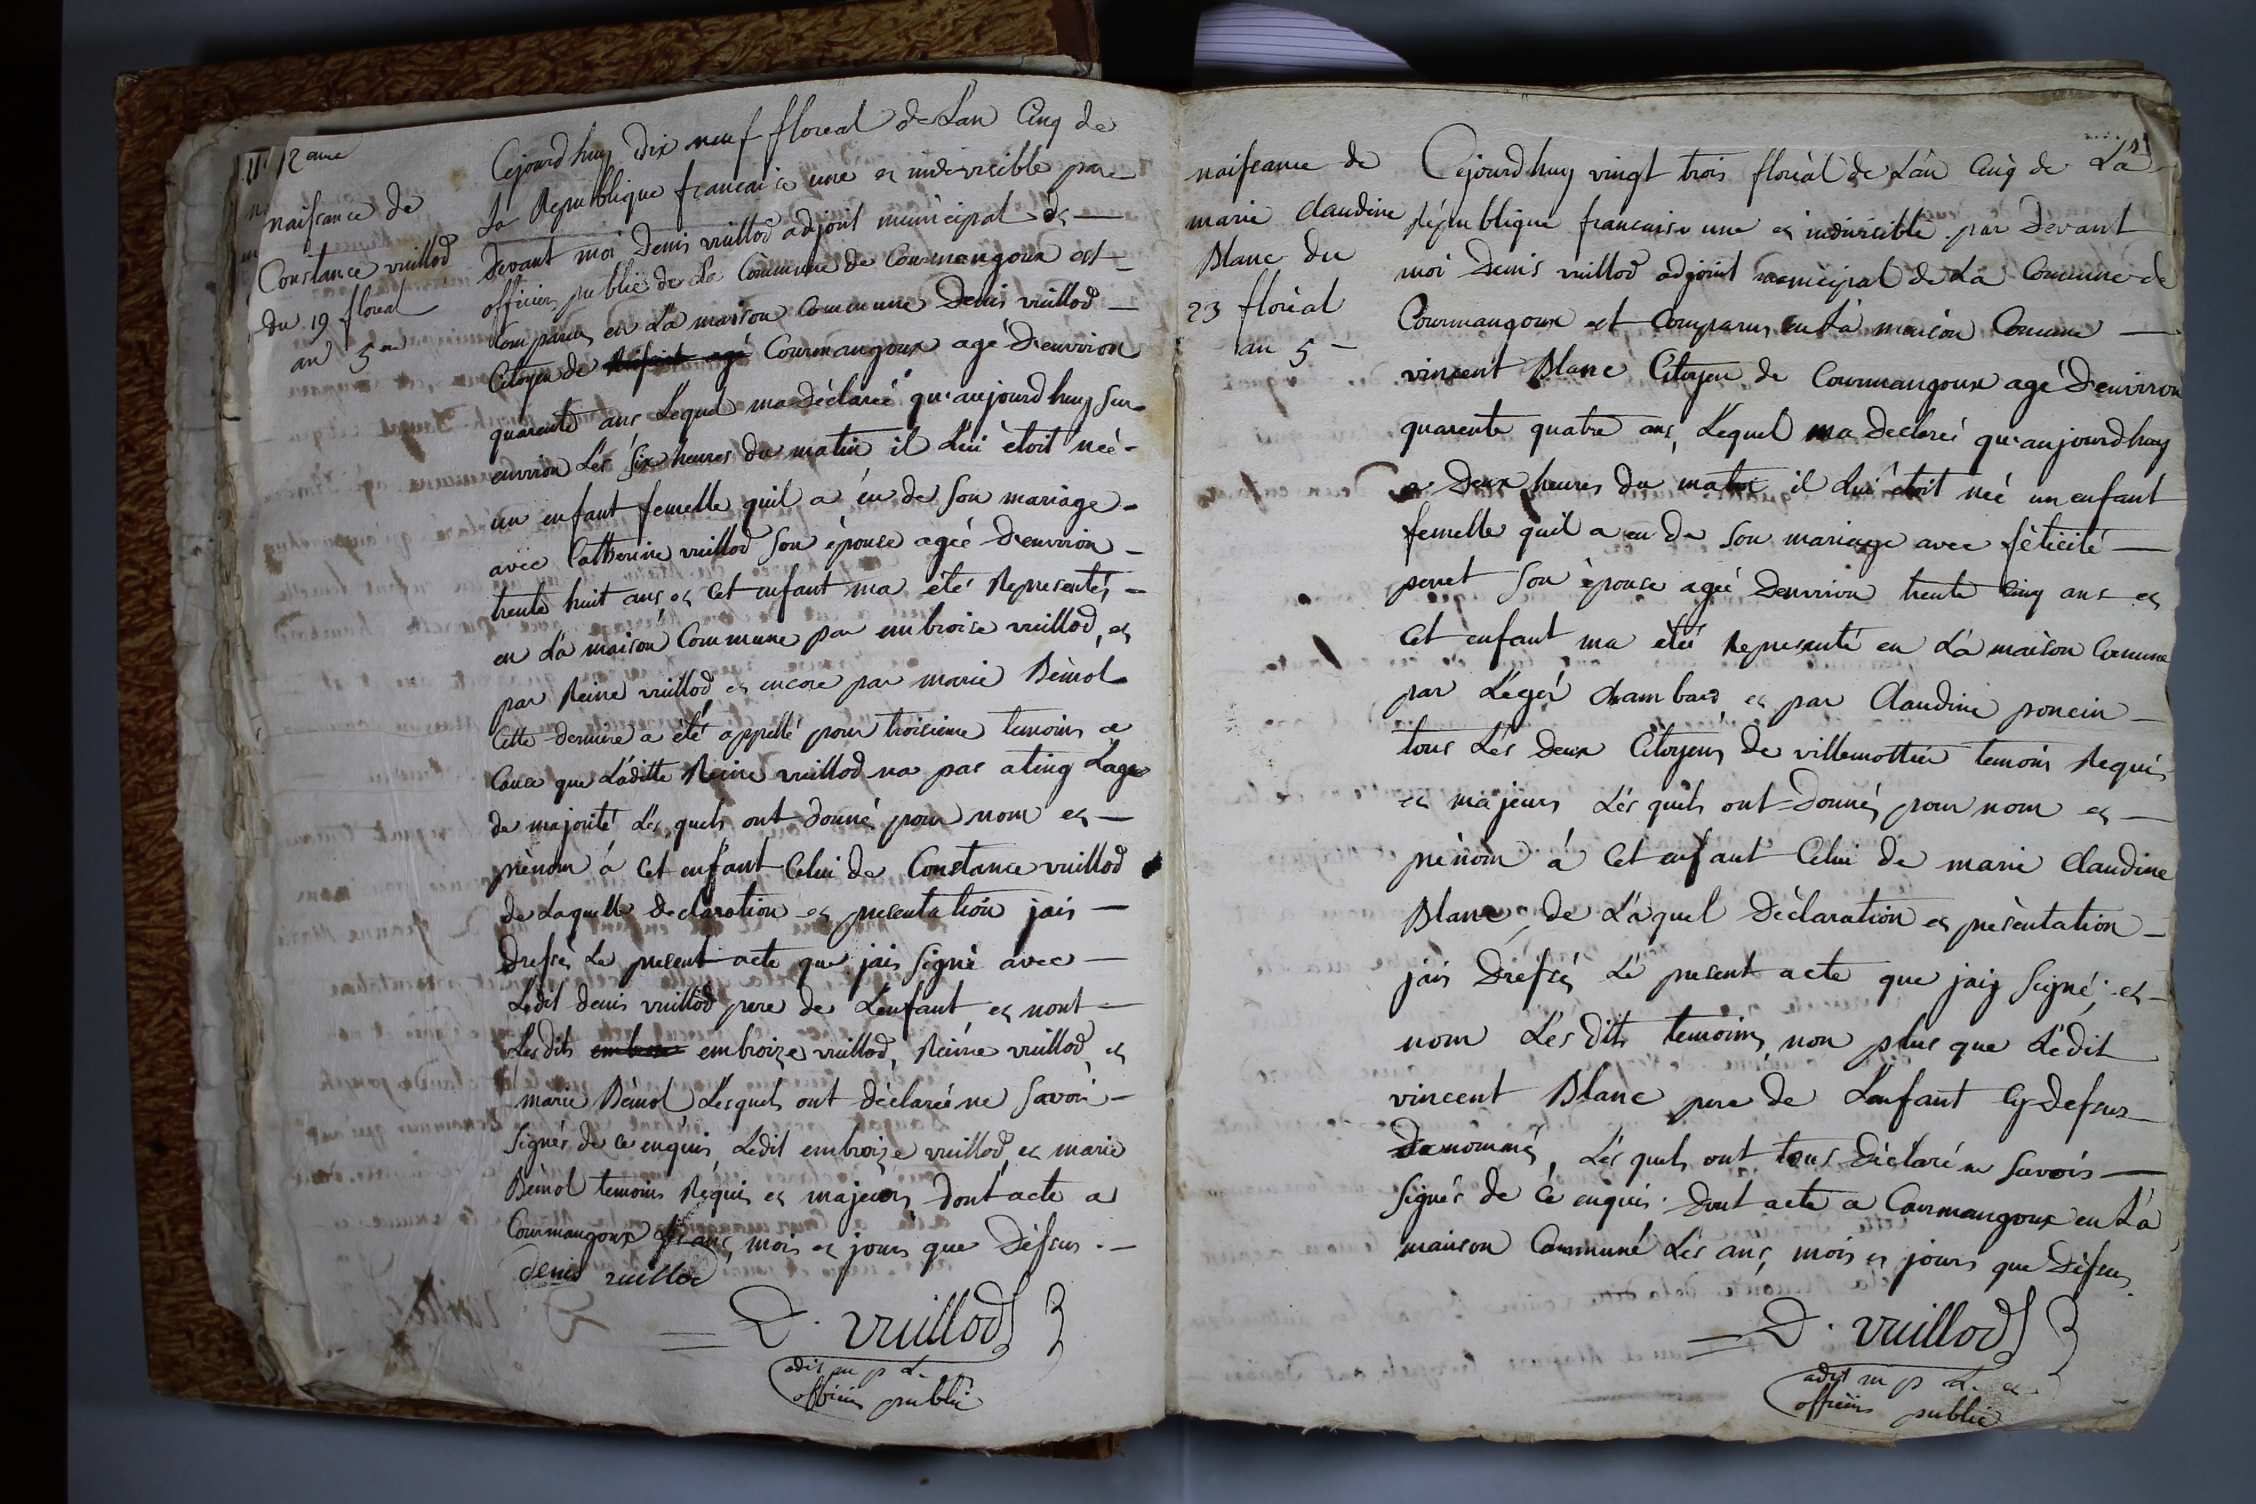 12 eme
naissance de
Constance vuillod
du 19 floreal
an 5 me
Cejourdhuy dix neuf floreal de Lan Cinq de
La Republique francaise une et indivisible par
devant moi Denis vuillod adjoint municipal et
officier public de La Commune de Courmangoux est
Comparus en La maison Commune Denis vuillod
Citoyen de Courmangoux agé D'environ
quarente ans Lequel ma déclaréé qu'aujourdhuy sur
environ Lés six heures du matin il Lui étoit néé
un enfant femelle quil a éu de son mariage
avec Catherine vuillod son épouse agéé d'environ
trente huit ans et Cet enfant ma été Representés
en La maison Commune par embroise vuillod, et
par Reine vuillod et encore par marie Bénol
Cette derniere a été appellé pour troisieme temoins a
Cause que Laditte Reine vuillod na pas ating Lage
de majorité Lés quels ont donné pour nom et
prénom á Cet enfant Celui de Constance vuillod
de Laquelle declaration et presentation jais
dressés Le present acte que jais signé avec
Ledit denis vuillod pere de Lenfant et nont
Lesdits embroize vuillod, Reine vuillod et
marie Bénol Lesquels ont déclaréé ne Savoir
signés de ce enquis Ledit embroize vuillod et marie
Bénol temoins Réquis et majeurs dont acte a
Courmangoux Les ans, mois et jours que Déssus.
denis vuillod
D. vuillod
adjt m p L.
officier public
naissance de
marie claudine
Blanc du
23 floréal
an 5
Cejourdhuy vingt trois floréal de Lan Cinq de La
République francaise une et indivisible par Devant
moi Denis vuillod adjoint municipal de La Comune de
Courmangoux est Comparus en La maison Comune
vincent Blanc Citoyen de Courmangoux agé D'environ
quarente quatre ans, Lequel ma declaréé qu'aujourdhuy
a Deux heures du matin il Lui étoit néé un enfant
femelle quil a eu de son mariage avec félicité
perret son épouse agéé Denviron trente Cinq ans et
Cet enfant ma étéé Representé en La maison Comune
par Légér chambard et par Claudine poncin
tous Lés Deux Citoyens de villemottier temoins Requis
et majeurs Lés quels ont Donnés pour nom et
prénom á Cet enfant Celui de marie Claudine
Blanc, de Laquel Déclaration et présentation
jais Dréssés Lé present acte que jaiy signé, et
nom Lés dits temoins, non plus que Lédit
vincent Blanc pere de Lenfant Cy-dessus
Denommés, Lés quels ont tous Déclaré ne Savoir
signés de Ce enquis. Dont acte a Courmangoux en La
maison Communé Lés ans, mois et jours que Déssus
D. vuillod
adjt m p L. et
officier public